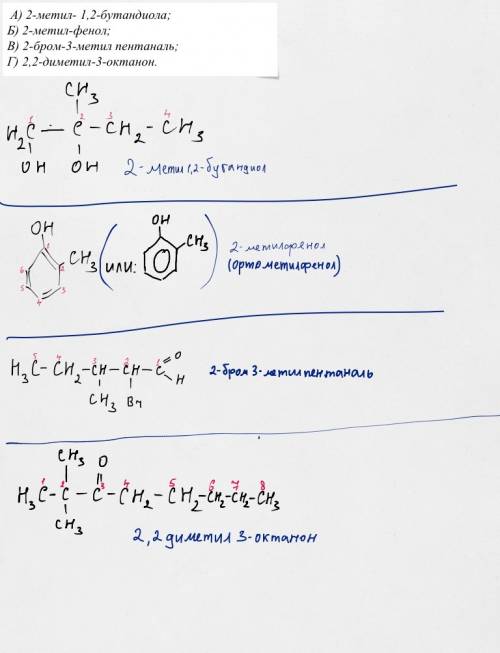 А) 2-метил- 1,2-бутандиола;
Б) 2-метил-фенол;
В) 2-бром-3-метил пентаналь;
Г) 2,2-диметил-3-октанон.
CH3 CH3
1 2 3 4
H2C — C — CH2 — CH3
OH OH
2-метил 1,2-бутандиол
OH OH
1 2 3 4 5 6
CH3 (или: CH3)
2-метилфенол
(ортометилфенол)
5 4 3 2 1
H3C - CH2 - CH - CH - C = O
H
CH3 Br
2-бром 3-метилпентаналь
CH3 O
1 2 3 4 5 6 7 8
H3C - C - C - CH2 - CH2 - CH2 - CH2 - CH3
CH3
2,2 диметил 3-октанон